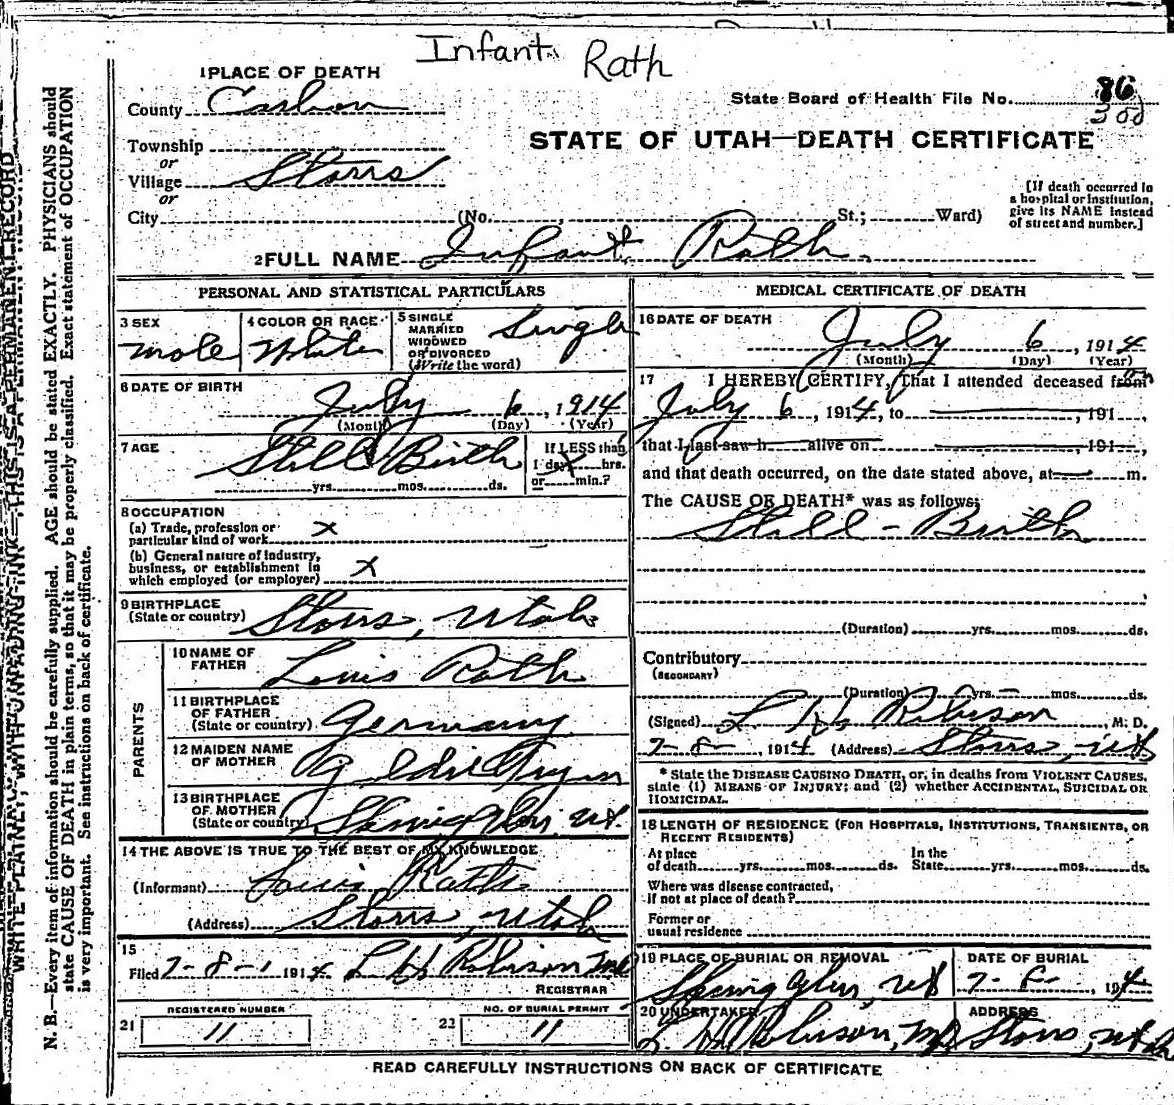 Infant Rath
1 PLACE OF DEATH
County Carbon
State Board of Health File No. 86
300
STATE OF UTAH—DEATH CERTIFICATE
Township
or
Village Storrs
or
City (No. , St.; Ward)
[If death occurred in a hospital or institution, give its NAME instead of street and number.]
2 FULL NAME Infant Rath.
PERSONAL AND STATISTICAL PARTICULARS
3 SEX
male
4 COLOR OR RACE
White
5 SINGLE
MARRIED
WIDOWED
OR DIVORCED
(Write the word)
Single
6 DATE OF BIRTH
July 6, 1914
(Month) (Day) (Year)
7 AGE
Still Birth
yrs. mos. ds.
If LESS than
1 day hrs.
or min.?
8 OCCUPATION
(a) Trade, profession or
particular kind of work x
(b) General nature of industry,
business, or establishment in
which employed (or employer) x
9 BIRTHPLACE
(State or country) Storrs, Utah
PARENTS
10 NAME OF
FATHER Louis Rath
11 BIRTHPLACE
OF FATHER
(State or country) Germany
12 MAIDEN NAME
OF MOTHER
13 BIRTHPLACE
OF MOTHER
(State or country) Spring Glen, Ut.
14 THE ABOVE IS TRUE TO THE BEST OF MY KNOWLEDGE
(Informant) Louis Rath
(Address) Storrs, Utah
15
Filed 7-8-, 1914 L H Robison MD
REGISTRAR
REGISTERED NUMBER
21 11
NO. OF BURIAL PERMIT
22 11
MEDICAL CERTIFICATE OF DEATH
16 DATE OF DEATH
July 6, 1914
(Month) (Day) (Year)
17 I HEREBY CERTIFY, That I attended deceased from
July 6, 1914, to , 191 ,
that I last saw h alive on , 191 ,
and that death occurred, on the date stated above, at m.
The CAUSE OF DEATH* was as follows:
Still - Birth
(Duration) yrs. mos. ds.
Contributory
(SECONDARY)
(Duration) yrs. mos. ds.
(Signed) L H Robison, M. D.
7-8-, 1914 (Address) Storrs, Ut
* State the DISEASE CAUSING DEATH, or, in deaths from VIOLENT CAUSES,
state (1) MEANS OF INJURY; and (2) whether ACCIDENTAL, SUICIDAL OR
HOMICIDAL.
18 LENGTH OF RESIDENCE (FOR HOSPITALS, INSTITUTIONS, TRANSIENTS, OR
RECENT RESIDENTS)
At place
of death yrs. mos. ds.
In the
State yrs. mos. ds.
Where was disease contracted,
If not at place of death?
Former or
usual residence
19 PLACE OF BURIAL OR REMOVAL
Spring Glen, Ut
DATE OF BURIAL
7-8-, 1914
20 UNDERTAKER
L H Robison, MD
ADDRESS
Storrs, Utah
READ CAREFULLY INSTRUCTIONS ON BACK OF CERTIFICATE
WRITE PLAINLY, WITH UNFADING INK—THIS IS A PERMANENT RECORD
N. B.—Every item of information should be carefully supplied. AGE should be stated EXACTLY. PHYSICIANS should
state CAUSE OF DEATH in plain terms, so that it may be properly classified. Exact statement of OCCUPATION
is very important. See instructions on back of certificate.